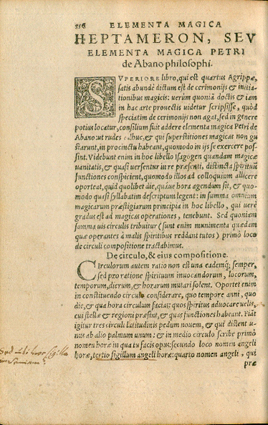 216 ELEMENTA MAGICA
HEPTAMERON, SEV
ELEMENTA MAGICA PETRI
de Abano philosophi.
SVPERIORE libro, qui est quartus Agrippæ,
satis abundè dictum est de cerimonijs & initia-
tionibus magicis: verùm quoniã doctis & iam
in hac arte provectis videtur scripsisse, quòd
speciatim de cerimonijs non agat, sed in genere
potius locutar, consilium fuit addere elementa magica Petri
de Abano: ut rudes adhuc, & qui superstitiones magicas non gu
stârunt, in promptu habeant, quomodo in ijs se exercere pos-
sint. Videbunt enim in hoc libello isagogen quandam magicæ
vanitatis, & quasi versentur in re præsenti, distinctas spirituũ
functiones conspicient, quomodo illos ad colloquium allicere
oporteat, quid quolibet die, quaue hora agendum sit, & quo-
modo quasi syllabatim descriptum legent: in summa omnium
magicarum præstigiarum principia in hoc libello, qui veri
gradus est ad magicas operationes, tenebunt. Sed quoniam
summa uis circulis tribuitur (sunt enim munimenta quædam
quæ operantes à malis spiritibus reddant tutos) primò loco
de circuli compositione tractabimus.
De circulo, & eius compositione.
Circulorum autem ratio non est una eademq; semper,
sed pro ratione spirituum inuocandorum, locorum,
temporum, dierum, & horarum mutari solent. Oportet enim
in constituendo circulo considerare, quo tempore anni, quo
die, & qua hora circulum facias: quos spiritus aduocare uelis,
cui stellæ & regioni præsint, & quas functiones habeant. Fiãt
igitur tres circuli latitudinis pedum nouem, & qui distent u-
nus ab alio palmum unum: & in medio circulo scribe primò
nomen horæ in qua tu facis opus: secundo loco nomen angeli
horæ, tertio sigillum angeli horæ: quarto nomen angeli, qui
præ